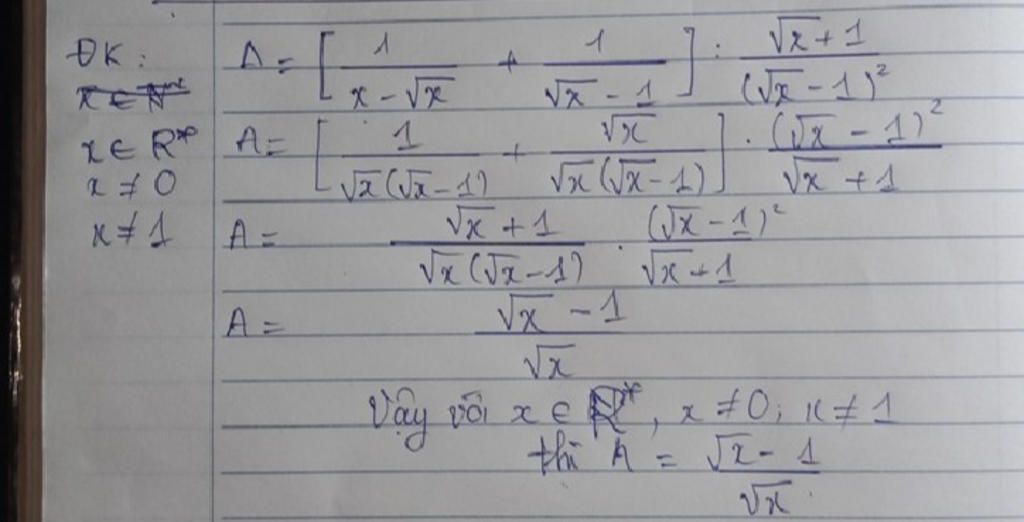 ĐK:
x ∈ N*
x ∈ R*
x ≠ 0
x ≠ 1
A = [1/(x - √x) + 1/(√x - 1)] : (√x + 1)/(√x - 1)²
A = [1/(√x(√x - 1)) + √x/(√x(√x - 1))] . (√x - 1)²/(√x + 1)
A = (√x + 1)/(√x(√x - 1)) . (√x - 1)²/(√x + 1)
A = (√x - 1)/√x
Vậy với x ∈ R*, x ≠ 0; x ≠ 1
thì A = (√x - 1)/√x